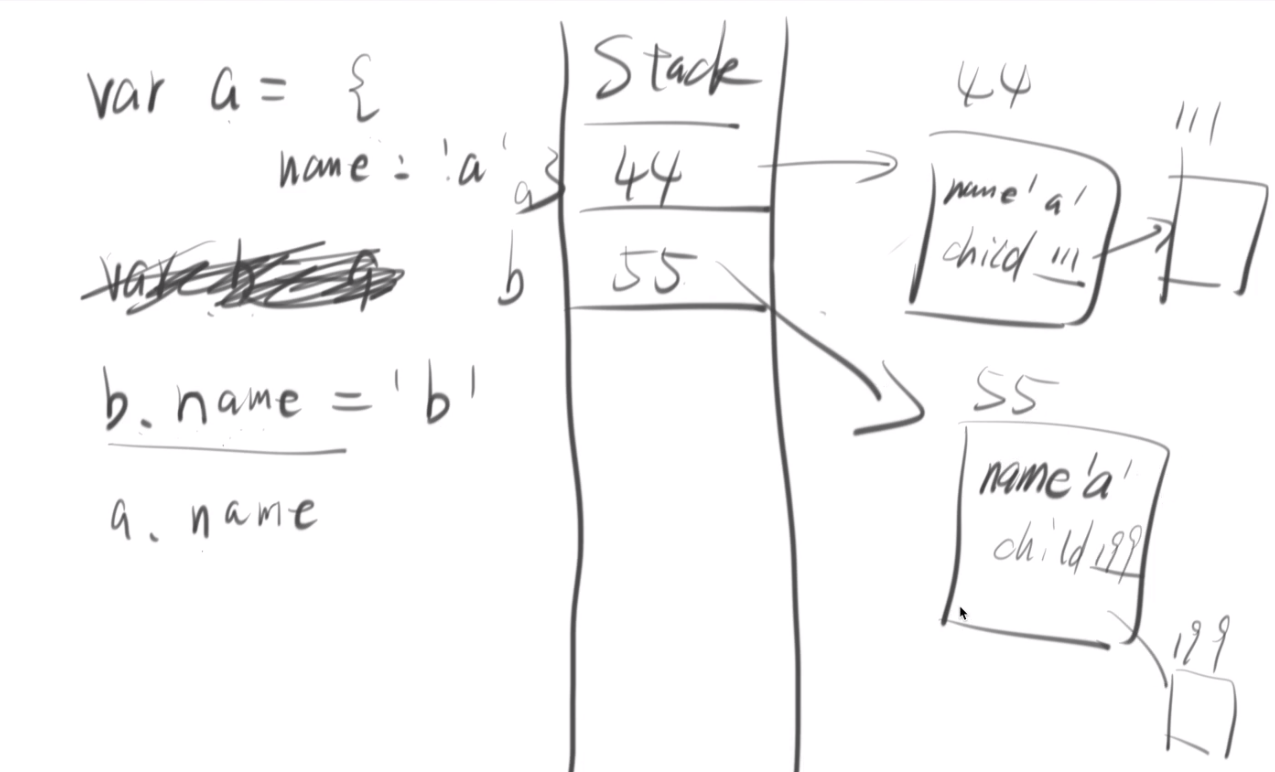 var a = {
name : 'a' }
b.name = 'b'
a.name
Stack
a 44
b 55
44
name 'a'
child 111
111
55
name 'a'
child 199
199